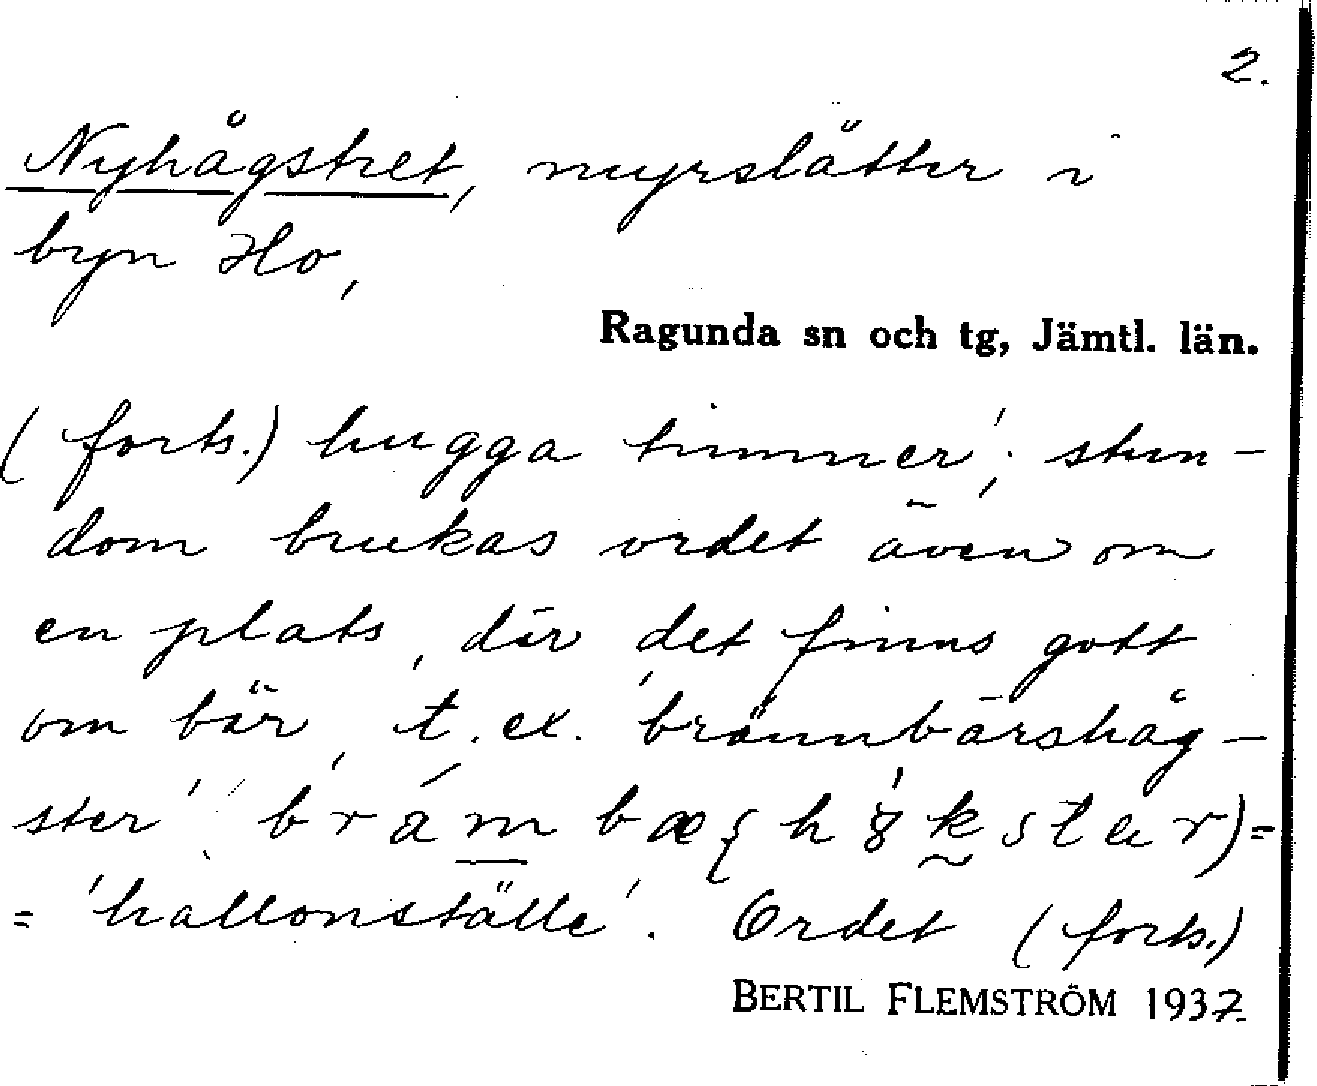 2.
Nyhågstret, myrslätter i
byn Ho,
Ragunda sn och tg, Jämtl. län.
(forts.) hugga timmer'; stun-
dom brukas ordet även om
en plats, där det finns gott
om bär, t. ex. 'brännbärshåg-
ster'
= 'hallonställe'. Ordet (forts.)
BERTIL FLEMSTRÖM 1937